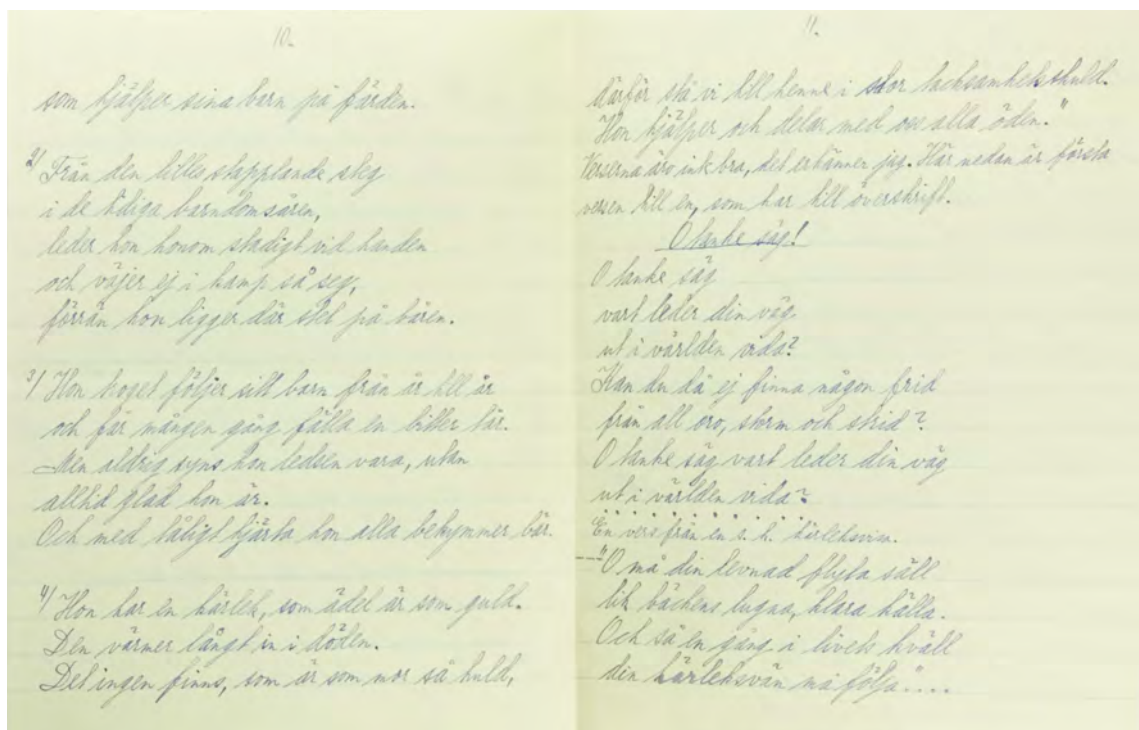 10.
som hjälper sina barn på färden.
2/ Från den lilles stapplande steg
i de tidiga barndomsåren,
leder hon honom stadigt vid handen
och väjer ej i kamp så seg,
förrän hon ligger där stel på båren.
3/ Hon troget följer sitt barn från år till år
och får mången gång fälla en bitter tår.
Men aldrig syns hon ledsen vara, utan
alltid glad hon är.
Och med tåligt hjärta hon alla bekymmer bär.
4/ Hon har en kärlek, som ädel är som guld.
Den värmer långt in i döden.
Det ingen finns, som är som mor så huld,
11.
därför stå vi till henne i stor tacksamhetsskuld.
Hon hjälper och delar med oss alla öden."
Verserna äro ink bra, det erkänner jag. Här nedan är första
versen till en, som har till överskrift.
O tanke säg!
O tanke säg
vart leder din väg
ut i världen vida?
Kan du då ej finna någon frid
från all oro, storm och strid?
O tanke säg vart leder din väg
ut i världen vida?
En vers från en s.k. kärleksvisa.
"O må din levnad flyta säll
lik bäckens lugna, klara källa.
Och så en gång i livets kväll
din kärleksvän må följa"....